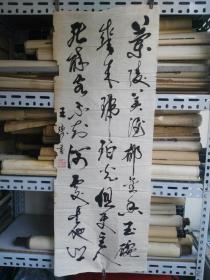 蘭陵美酒鬱金香玉碗
盛来琥珀光但使主人
能醉客不知何处是他鄉